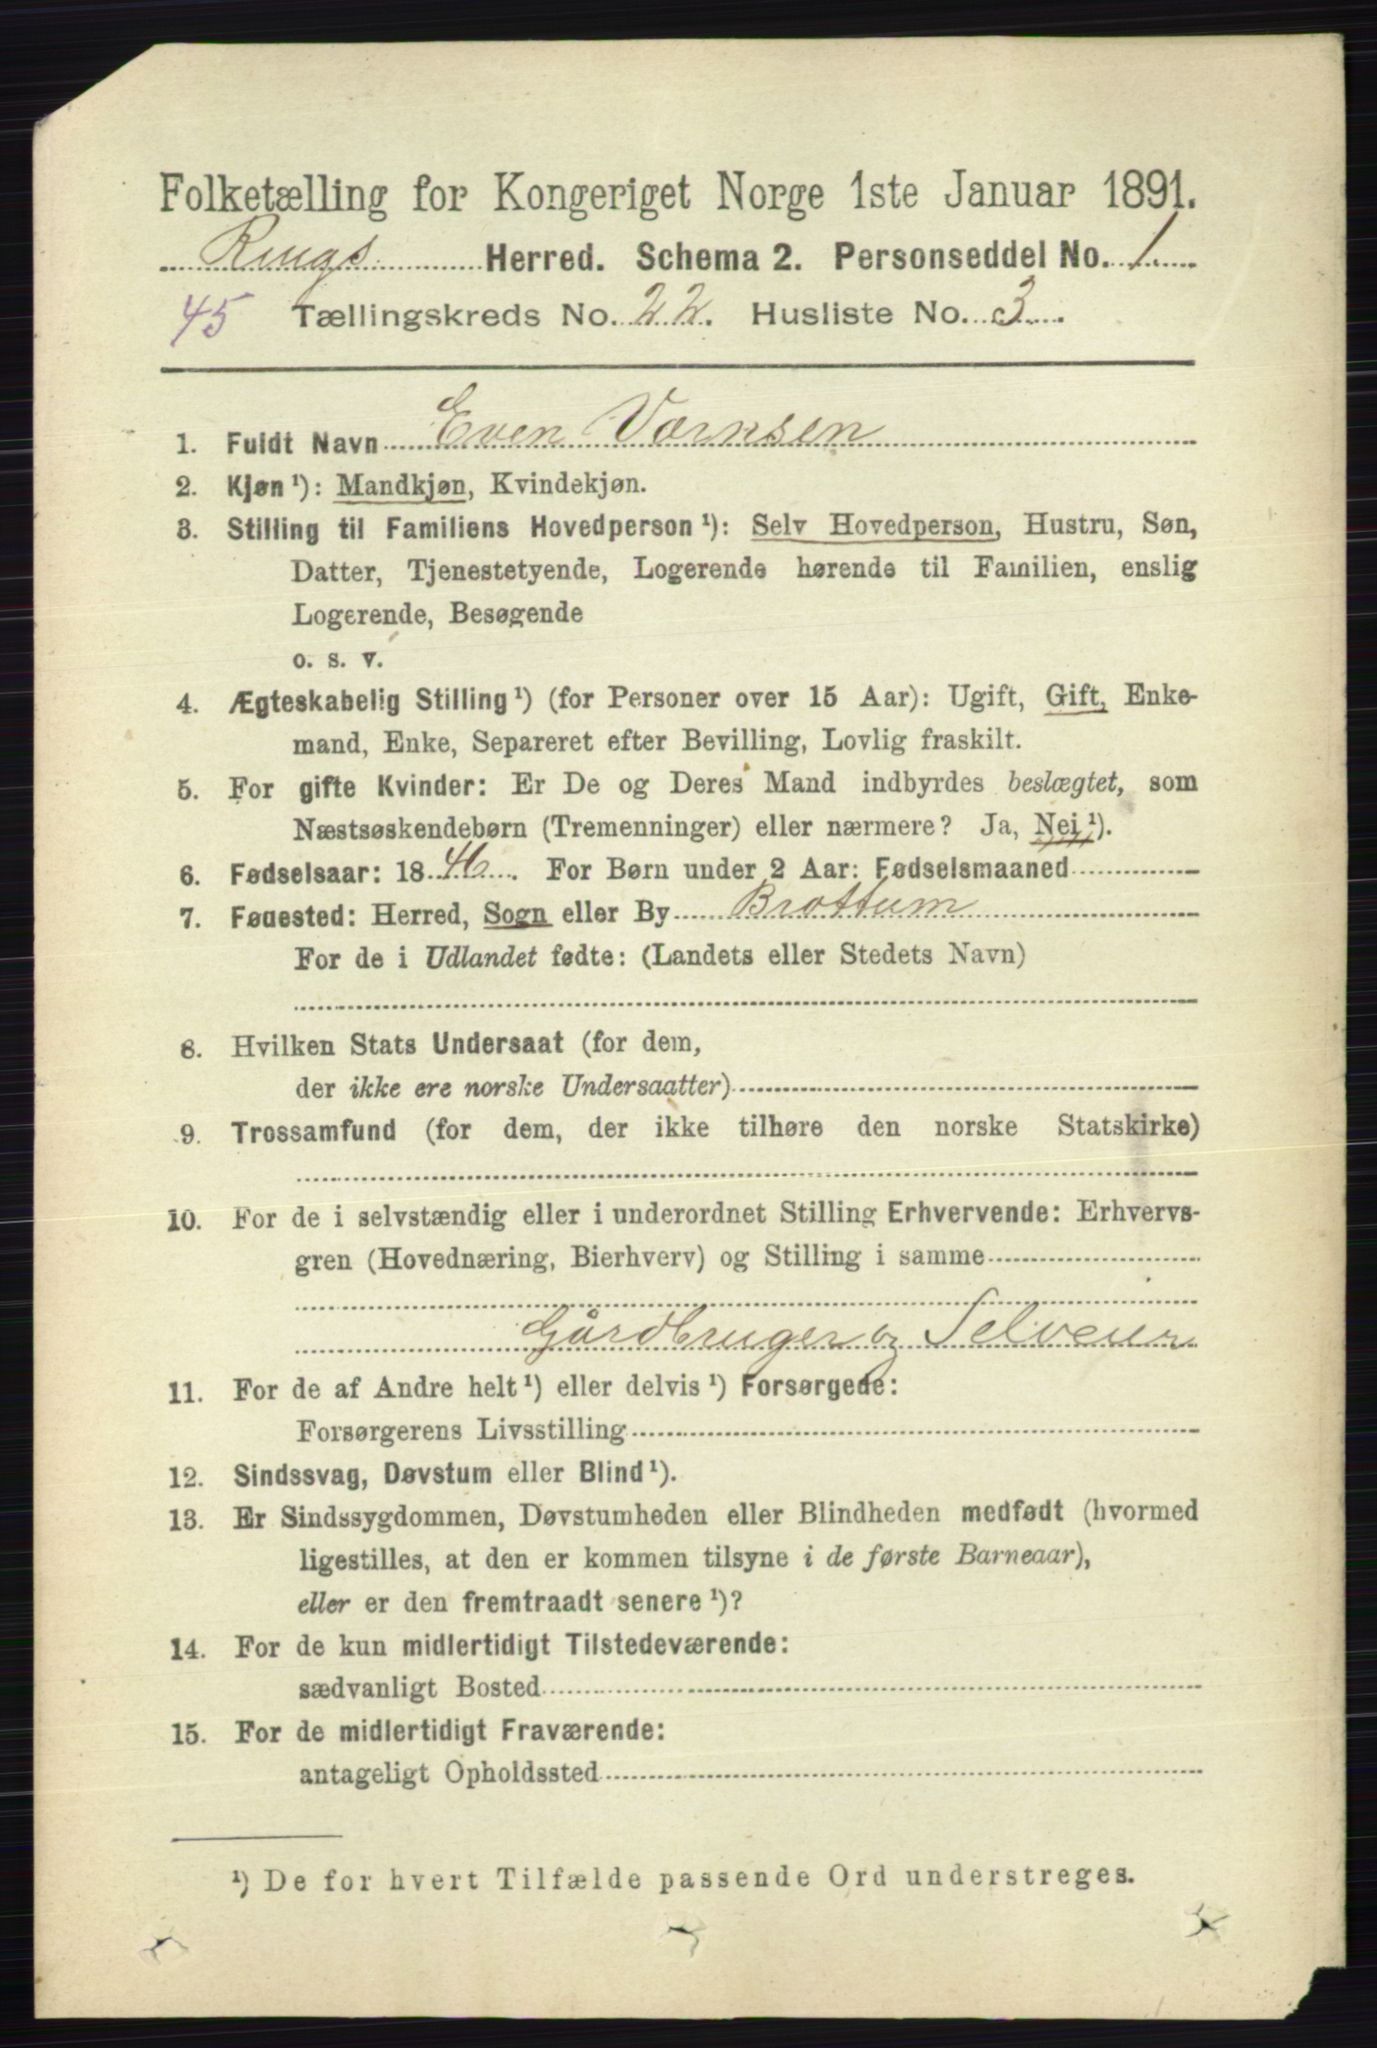 Folketælling for Kongeriget Norge 1ste Januar 1891.
Rings Herred. Schema 2. Personseddel No. 1
45 Tællingskreds No. 22. Husliste No. 3.
1. Fuldt Navn Even Vornsen
2. Kjøn ¹): Mandkjøn, Kvindekjøn.
3. Stilling til Familiens Hovedperson ¹): Selv Hovedperson, Hustru, Søn,
Datter, Tjenestetyende, Logerende hørende til Familien, enslig
Logerende, Besøgende
o. s. v.
4. Ægteskabelig Stilling ¹) (for Personer over 15 Aar): Ugift, Gift, Enke-
mand, Enke, Separeret efter Bevilling, Lovlig fraskilt.
5. For gifte Kvinder: Er De og Deres Mand indbyrdes beslægtet, som
Næstsøskendebørn (Tremenninger) eller nærmere? Ja, Nei ¹).
6. Fødselsaar: 1846. For Børn under 2 Aar: Fødselsmaaned
7. Fødested: Herred, Sogn eller By Brottum
For de i Udlandet fødte: (Landets eller Stedets Navn)
8. Hvilken Stats Undersaat (for dem,
der ikke ere norske Undersaatter)
9. Trossamfund (for dem, der ikke tilhøre den norske Statskirke)
10. For de i selvstændig eller i underordnet Stilling Erhvervende: Erhvervs-
gren (Hovednæring, Bierhverv) og Stilling i samme
Gårdbruger og Selveier
11. For de af Andre helt ¹) eller delvis ¹) Forsørgede:
Forsørgerens Livsstilling
12. Sindssvag, Døvstum eller Blind ¹).
13. Er Sindssygdommen, Døvstumheden eller Blindheden medfødt (hvormed
ligestilles, at den er kommen tilsyne i de første Barneaar),
eller er den fremtraadt senere ¹)?
14. For de kun midlertidigt Tilstedeværende:
sædvanligt Bosted
15. For de midlertidigt Fraværende:
antageligt Opholdssted
¹) De for hvert Tilfælde passende Ord understreges.